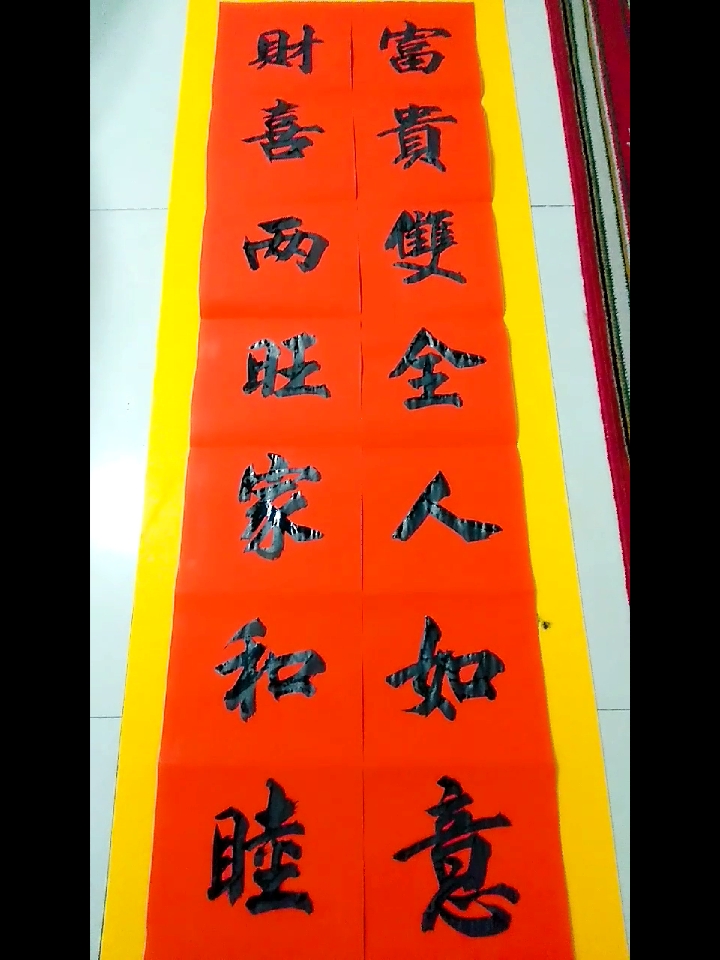 富貴雙全人如意
財喜两旺家和睦